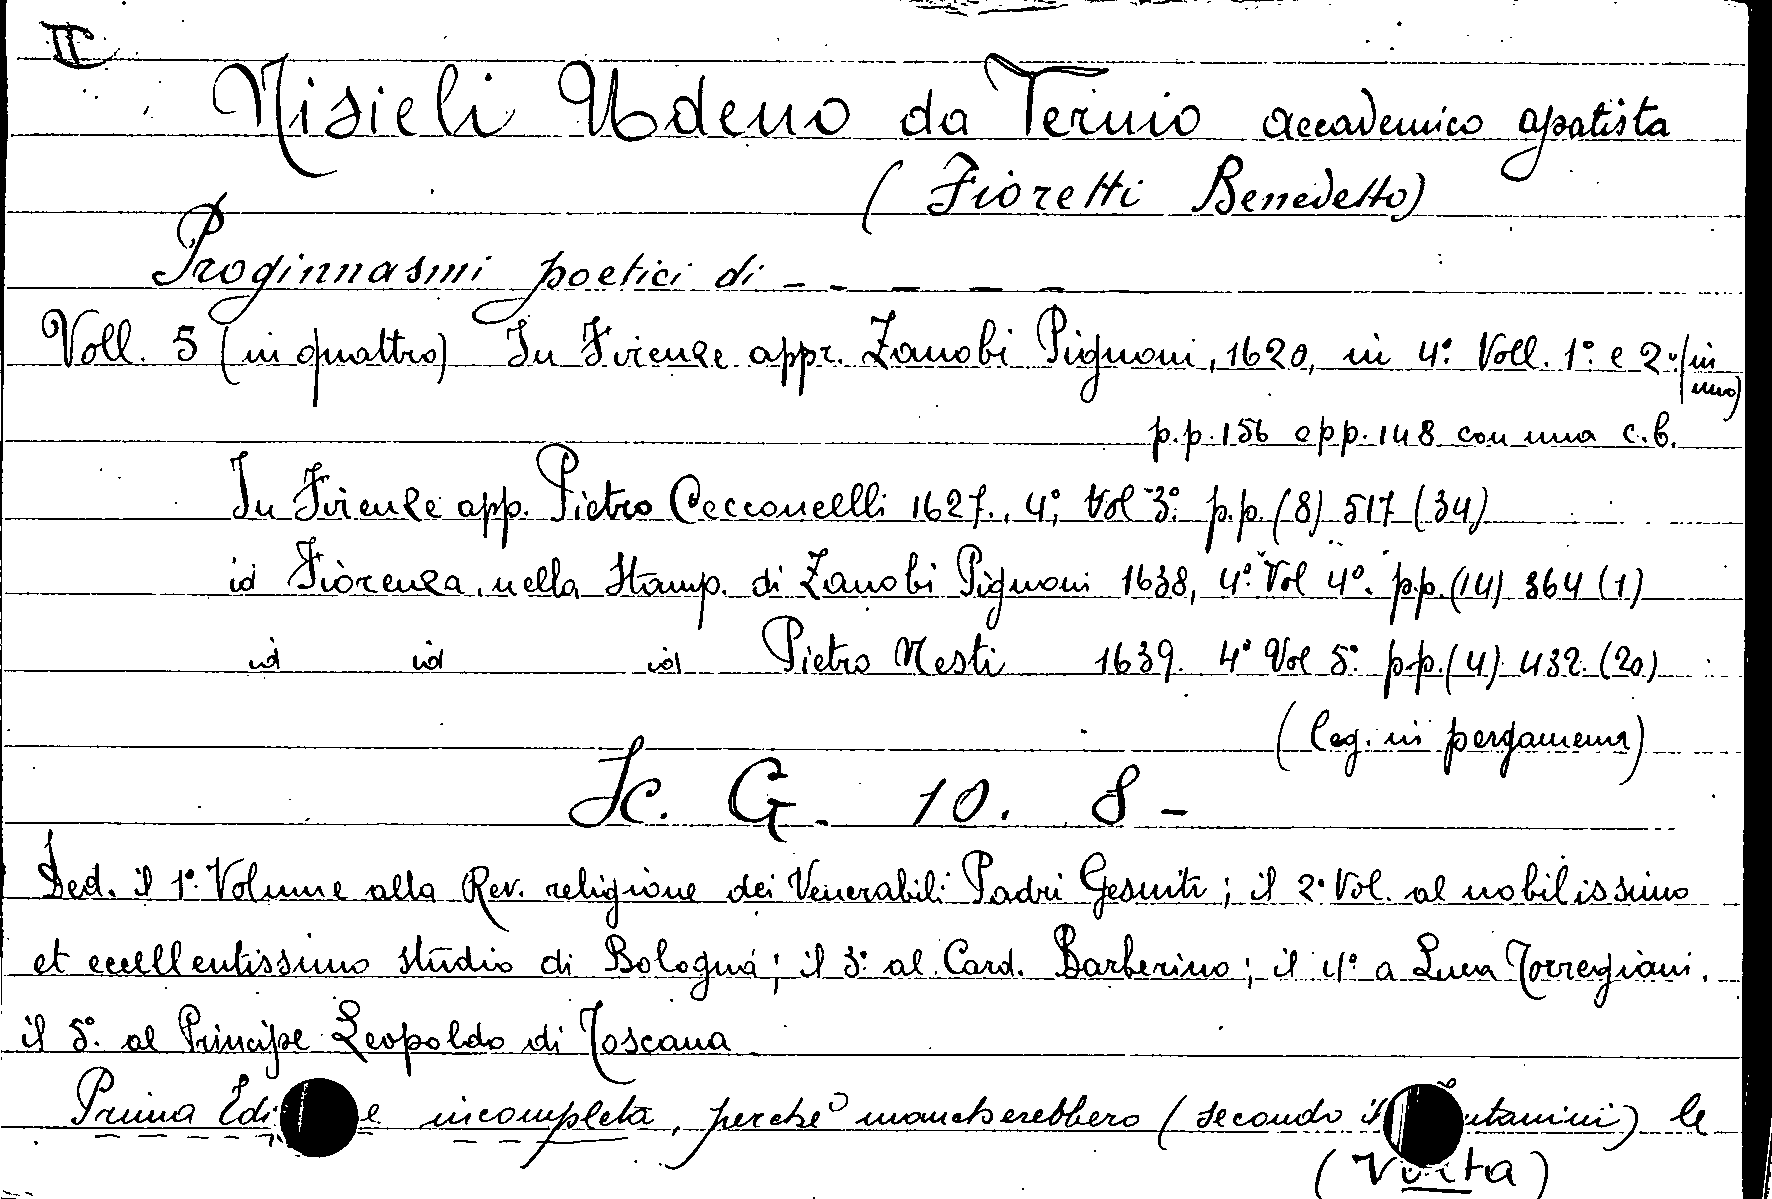 II
Nisieli Udeno da Vernio accademico apatista
(Fioretti Benedetto)
Proginnasmi poetici di - - - - -
Voll. 5 (in quattro) In Firenze appr. Zanobi Pignoni, 1620, in 4º. Voll. 1º. e 2º. (in uno)
p.p. 156 e pp. 148 con una c.b.
In Firenze app. Pietro Cecconcelli 1627., 4º, Vol 3º. p.p. (8) 517 (34)
id Fiorenza, nella Stamp. di Zanobi Pignoni 1638, 4º. Vol 4º. p.p. (14) 364 (1)
id id id Pietro Nesti 1639. 4º Vol 5º. p.p. (4) 432. (20)
(leg. in pergamena)
K. G. 10. 8 -
Ded. il 1º. Volume alla Rev. religione dei Venerabili Padri Gesuiti; il 2º Vol. al nobilissimo
et eccellentissimo studio di Bologna; il 3º. al Card. Barberino; il 4º a Luca Torregiani.
il 5º. al Principe Leopoldo di Toscana
Prima incompleta, perchè mancherebbero (secondo il le
(Volta)